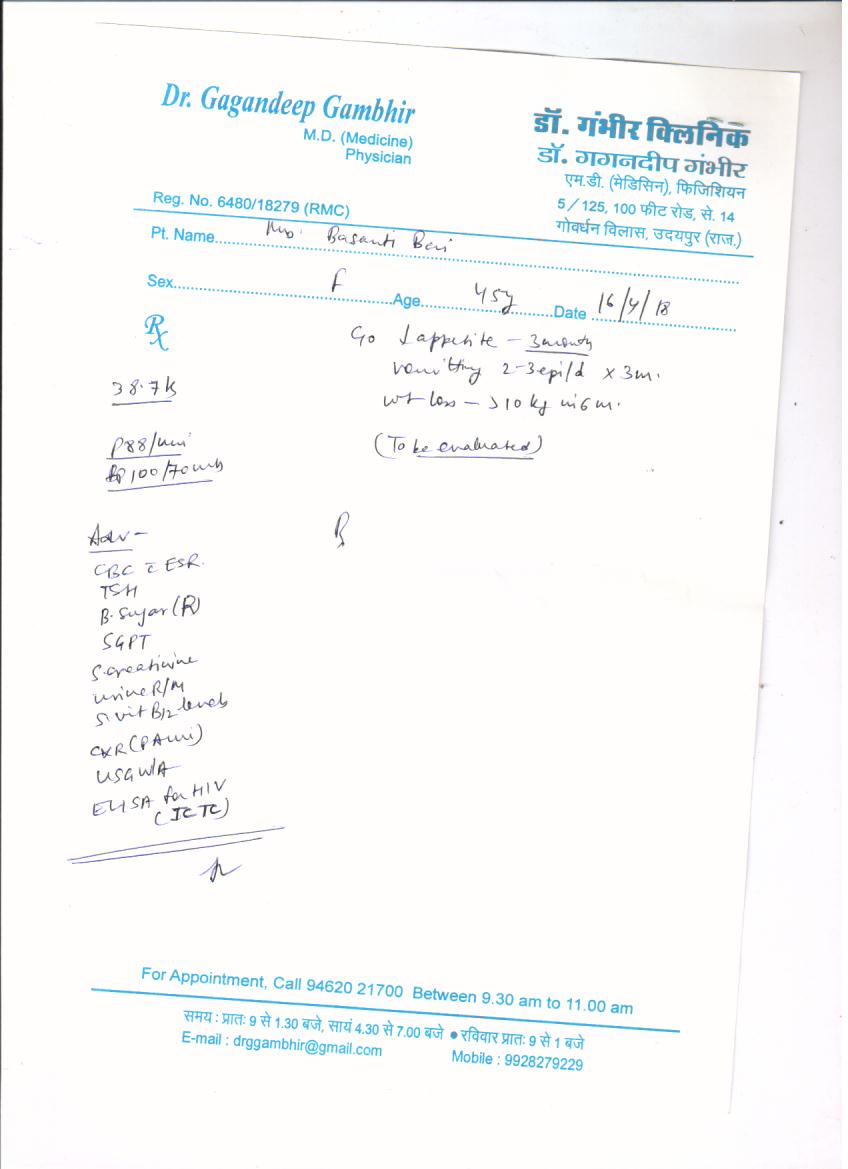 Dr. Gagandeep Gambhir
M.D. (Medicine)
Physician
Reg. No. 6480/18279 (RMC)
डॉ. गंभीर क्लिनिक
डॉ. गगनदीप गंभीर
एम.डी. (मेडिसिन), फिजिशियन
5/125, 100 फीट रोड, से. 14
गोवर्धन विलास, उदयपुर (राज.)
Pt. Name Basanti
Sex F Age 45y Date 16/4/18
Rx
C/o ↓appetite - 3 months
vomitting 2-3 epi/d x 3m.
wt loss - >10 kg in 6 m.
(To be evaluated)
38.7 k
P 88/min
BP 100/70
Adv -
CBC c̄ ESR.
TSH
B. Sugar (R)
SGPT
S. creatinine
urine R/M
S. vit B12 levels
CXR (PA
USG W/A
ELISA for HIV
(ICTC)
For Appointment, Call 94620 21700 Between 9.30 am to 11.00 am
समय : प्रातः 9 से 1.30 बजे, सायं 4.30 से 7.00 बजे ● रविवार प्रातः 9 से 1 बजे
E-mail : drggambhir@gmail.com Mobile : 9928279229